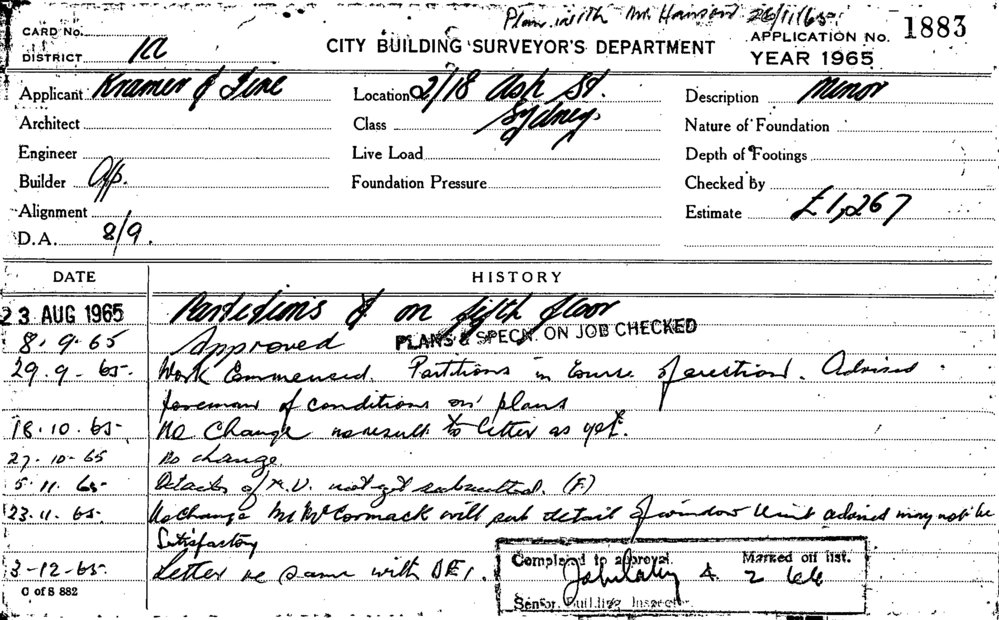 Plan with Mr Hanson 26/11/65
CARD No.
APPLICATION No. 1883
CITY BUILDING SURVEYOR'S DEPARTMENT
DISTRICT
YEAR 1965
Applicant Kramer & Fine
Location 2/18 Ash St. Sydney.
Description Minor
Architect
Class
Nature of Foundation
Engineer
Live Load
Depth of Footings
Builder App.
Foundation Pressure
Checked by
Alignment
Estimate £1,267
D.A. 8/9.
DATE HISTORY
23 AUG 1965 Partitions & on fifth floor
8.9.65 Approved PLANS & SPECN. ON JOB CHECKED
29.9.65. Work Commenced. Partitions in course of erection. Advised
foreman of conditions on plans
18.10.65 No Change no result to letter as yet.
27.10.65 No change.
5.11.65 Details of M.V. not yet submitted. (F)
23.11.65. No Change Mr McCormack will sub detail of window Unit advised may not be
Satisfactory
3-12-65. Letter re same with
Completed to approval. Marked off list.
4. 2 66
Senior Building Inspector
C of S 882